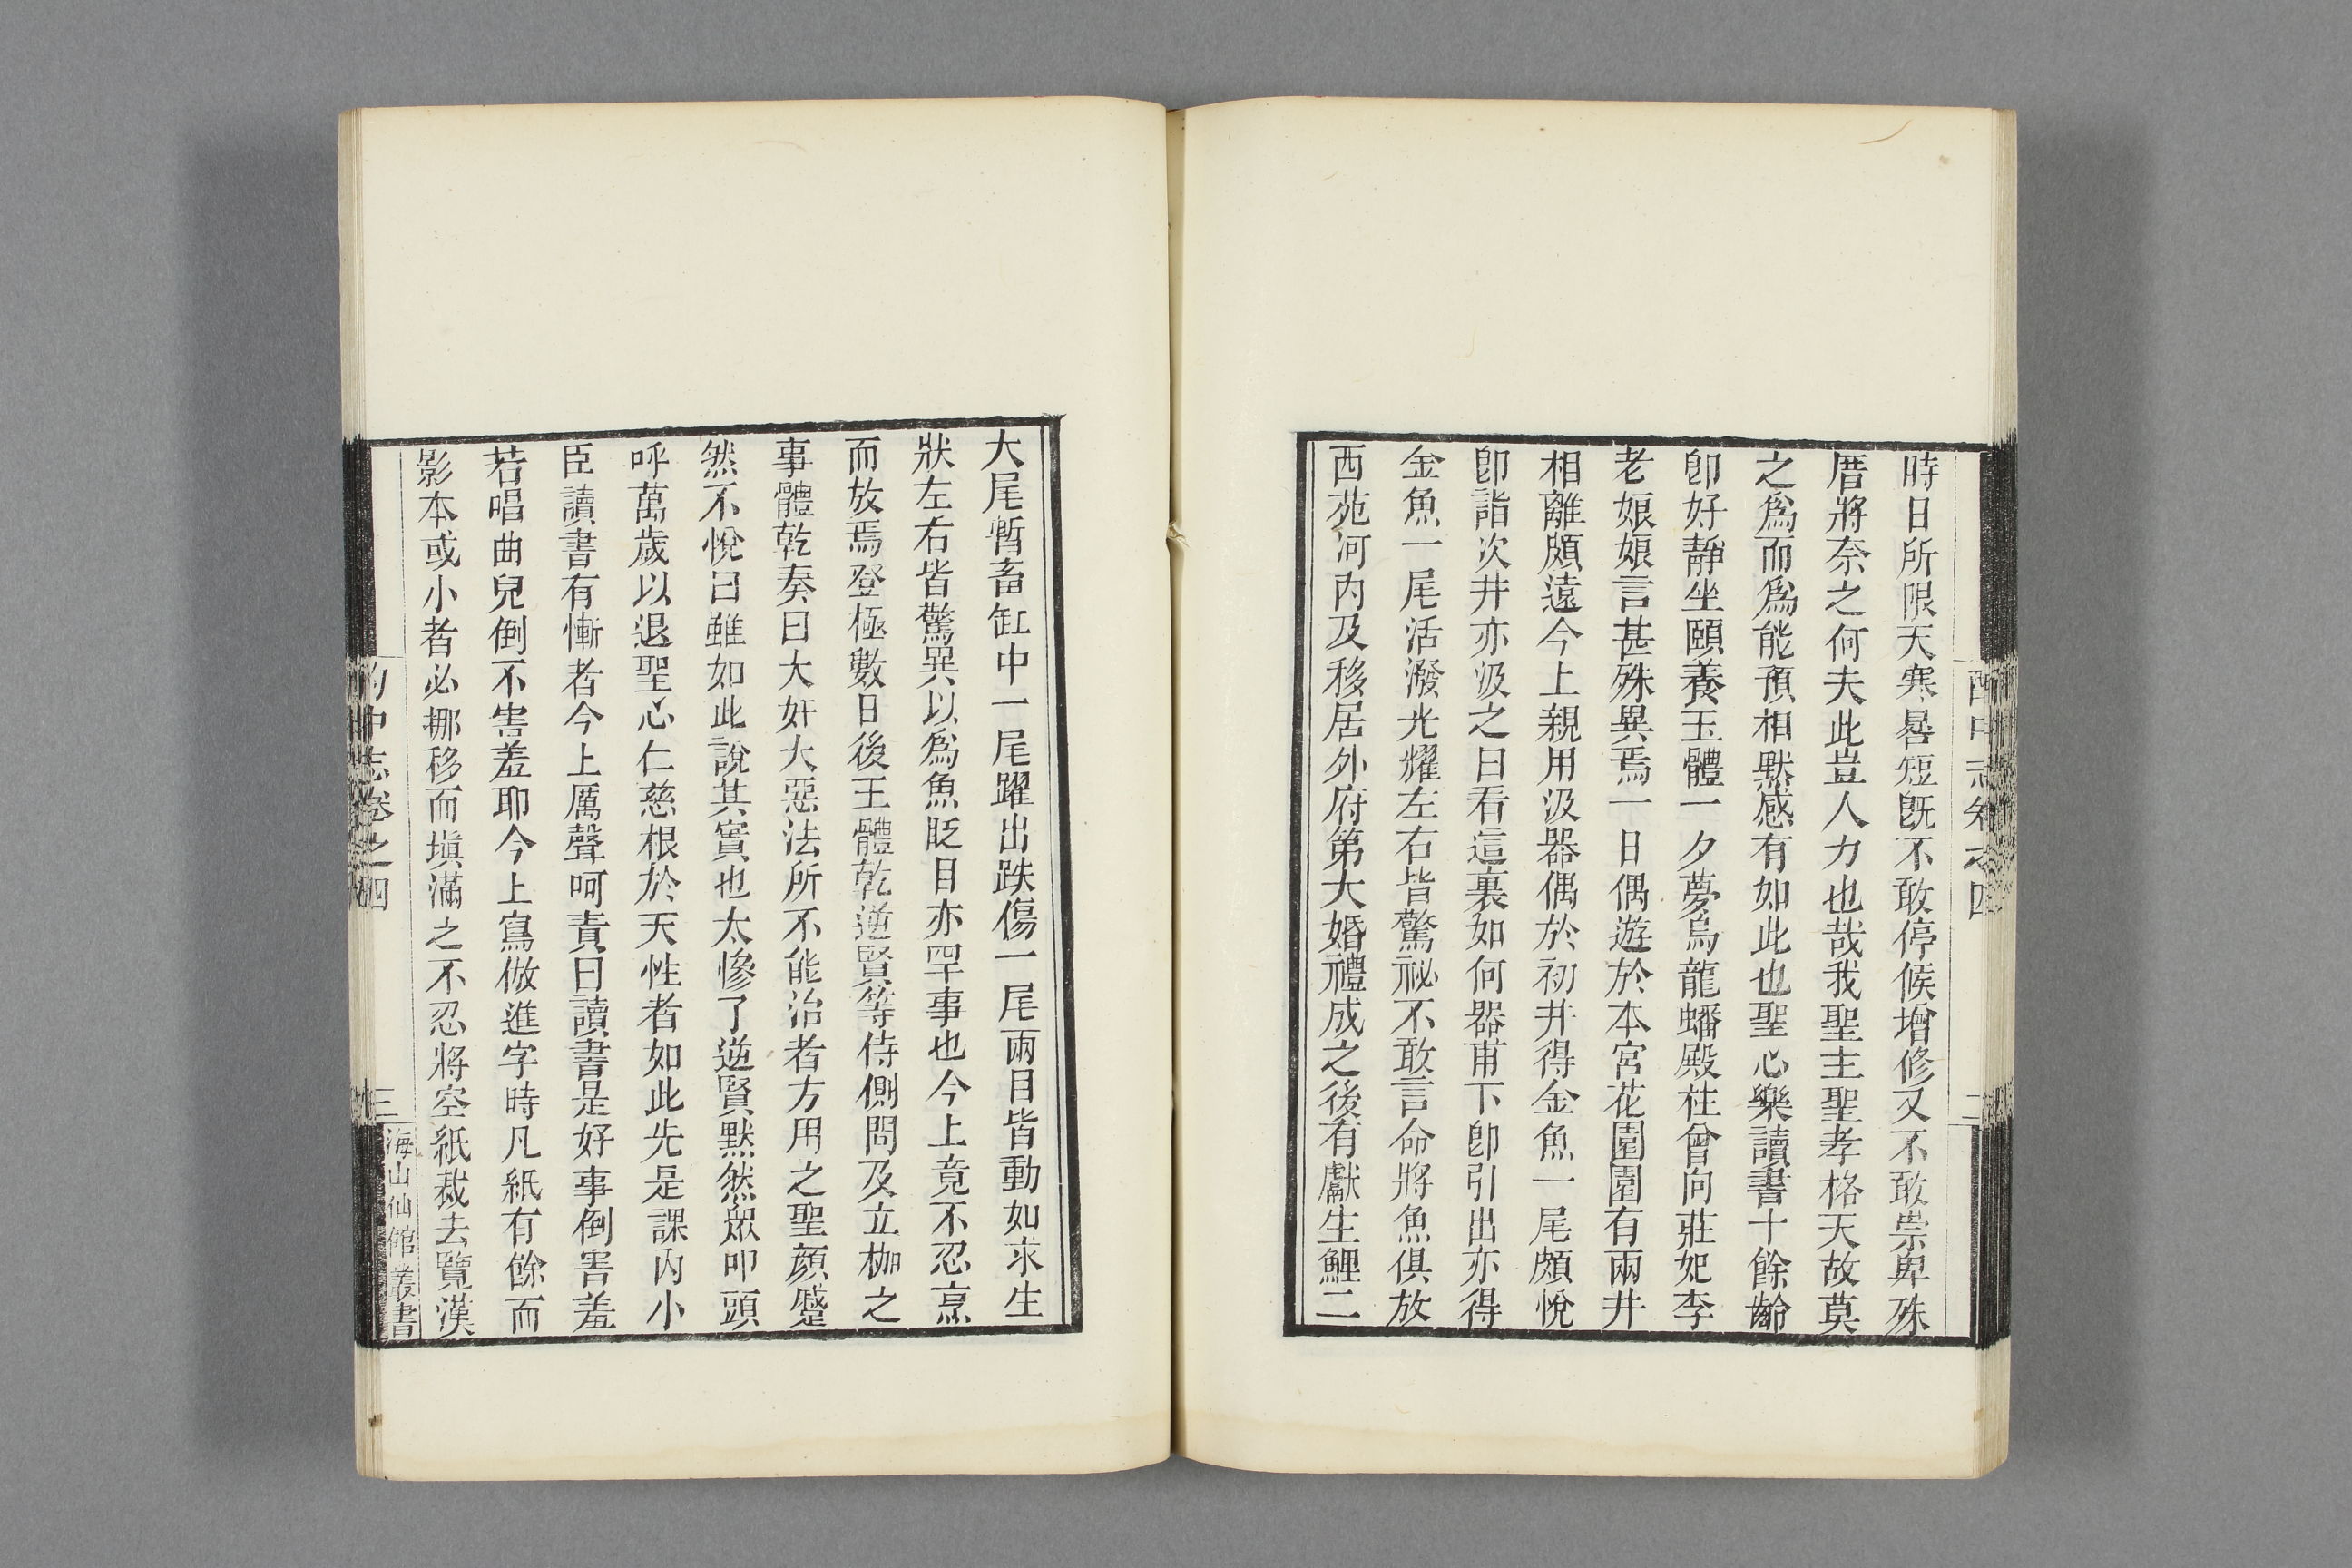 時日所限天寒晷短既不敢停候增修又不敢崇卑殊
厝將奈之何夫此豈人力也哉我聖主聖孝格天故莫
之爲而爲能預相默感有如此也聖心樂讀書十餘齡
卽好靜坐頤養玉體一夕夢烏龍蟠殿柱曾向莊妃李
老娘娘言甚殊異焉一日偶遊於本宮花園園有兩井
相離頗遠今上親用汲器偶於初井得金魚一尾頗悅
卽詣次井亦汲之曰看這裏如何器甫下卽引出亦得
金魚一尾活潑光耀左右皆驚祕不敢言命將魚俱放
西苑河內及移居外府第大婚禮成之後有獻生鯉二
大尾暫畜缸中一尾躍出跌傷一尾兩目皆動如求生
狀左右皆驚異以爲魚眨目亦罕事也今上竟不忍烹
而放焉登極數日後王體乾逆賢等侍側問及立枷之
事體乾奏曰大奸大惡法所不能治者方用之聖顏蹙
然不悅曰雖如此說其實也太慘了逆賢默然眾叩頭
呼萬歲以退聖心仁慈根於天性者如此先是課內小
臣讀書有慚者今上厲聲呵責曰讀書是好事倒害羞
若唱曲兒倒不害羞耶今上寫倣進字時凡紙有餘而
影本或小者必挪移而塡滿之不忍將空紙裁去覽漢
酌中志卷之四
三
海山仙館叢書